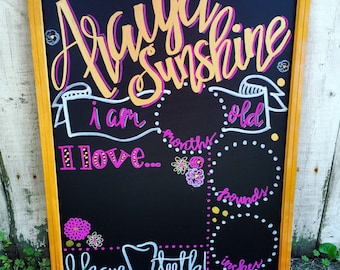 Araya
Sunshine
i am old
months
I love...
pounds
I have teeth
inches